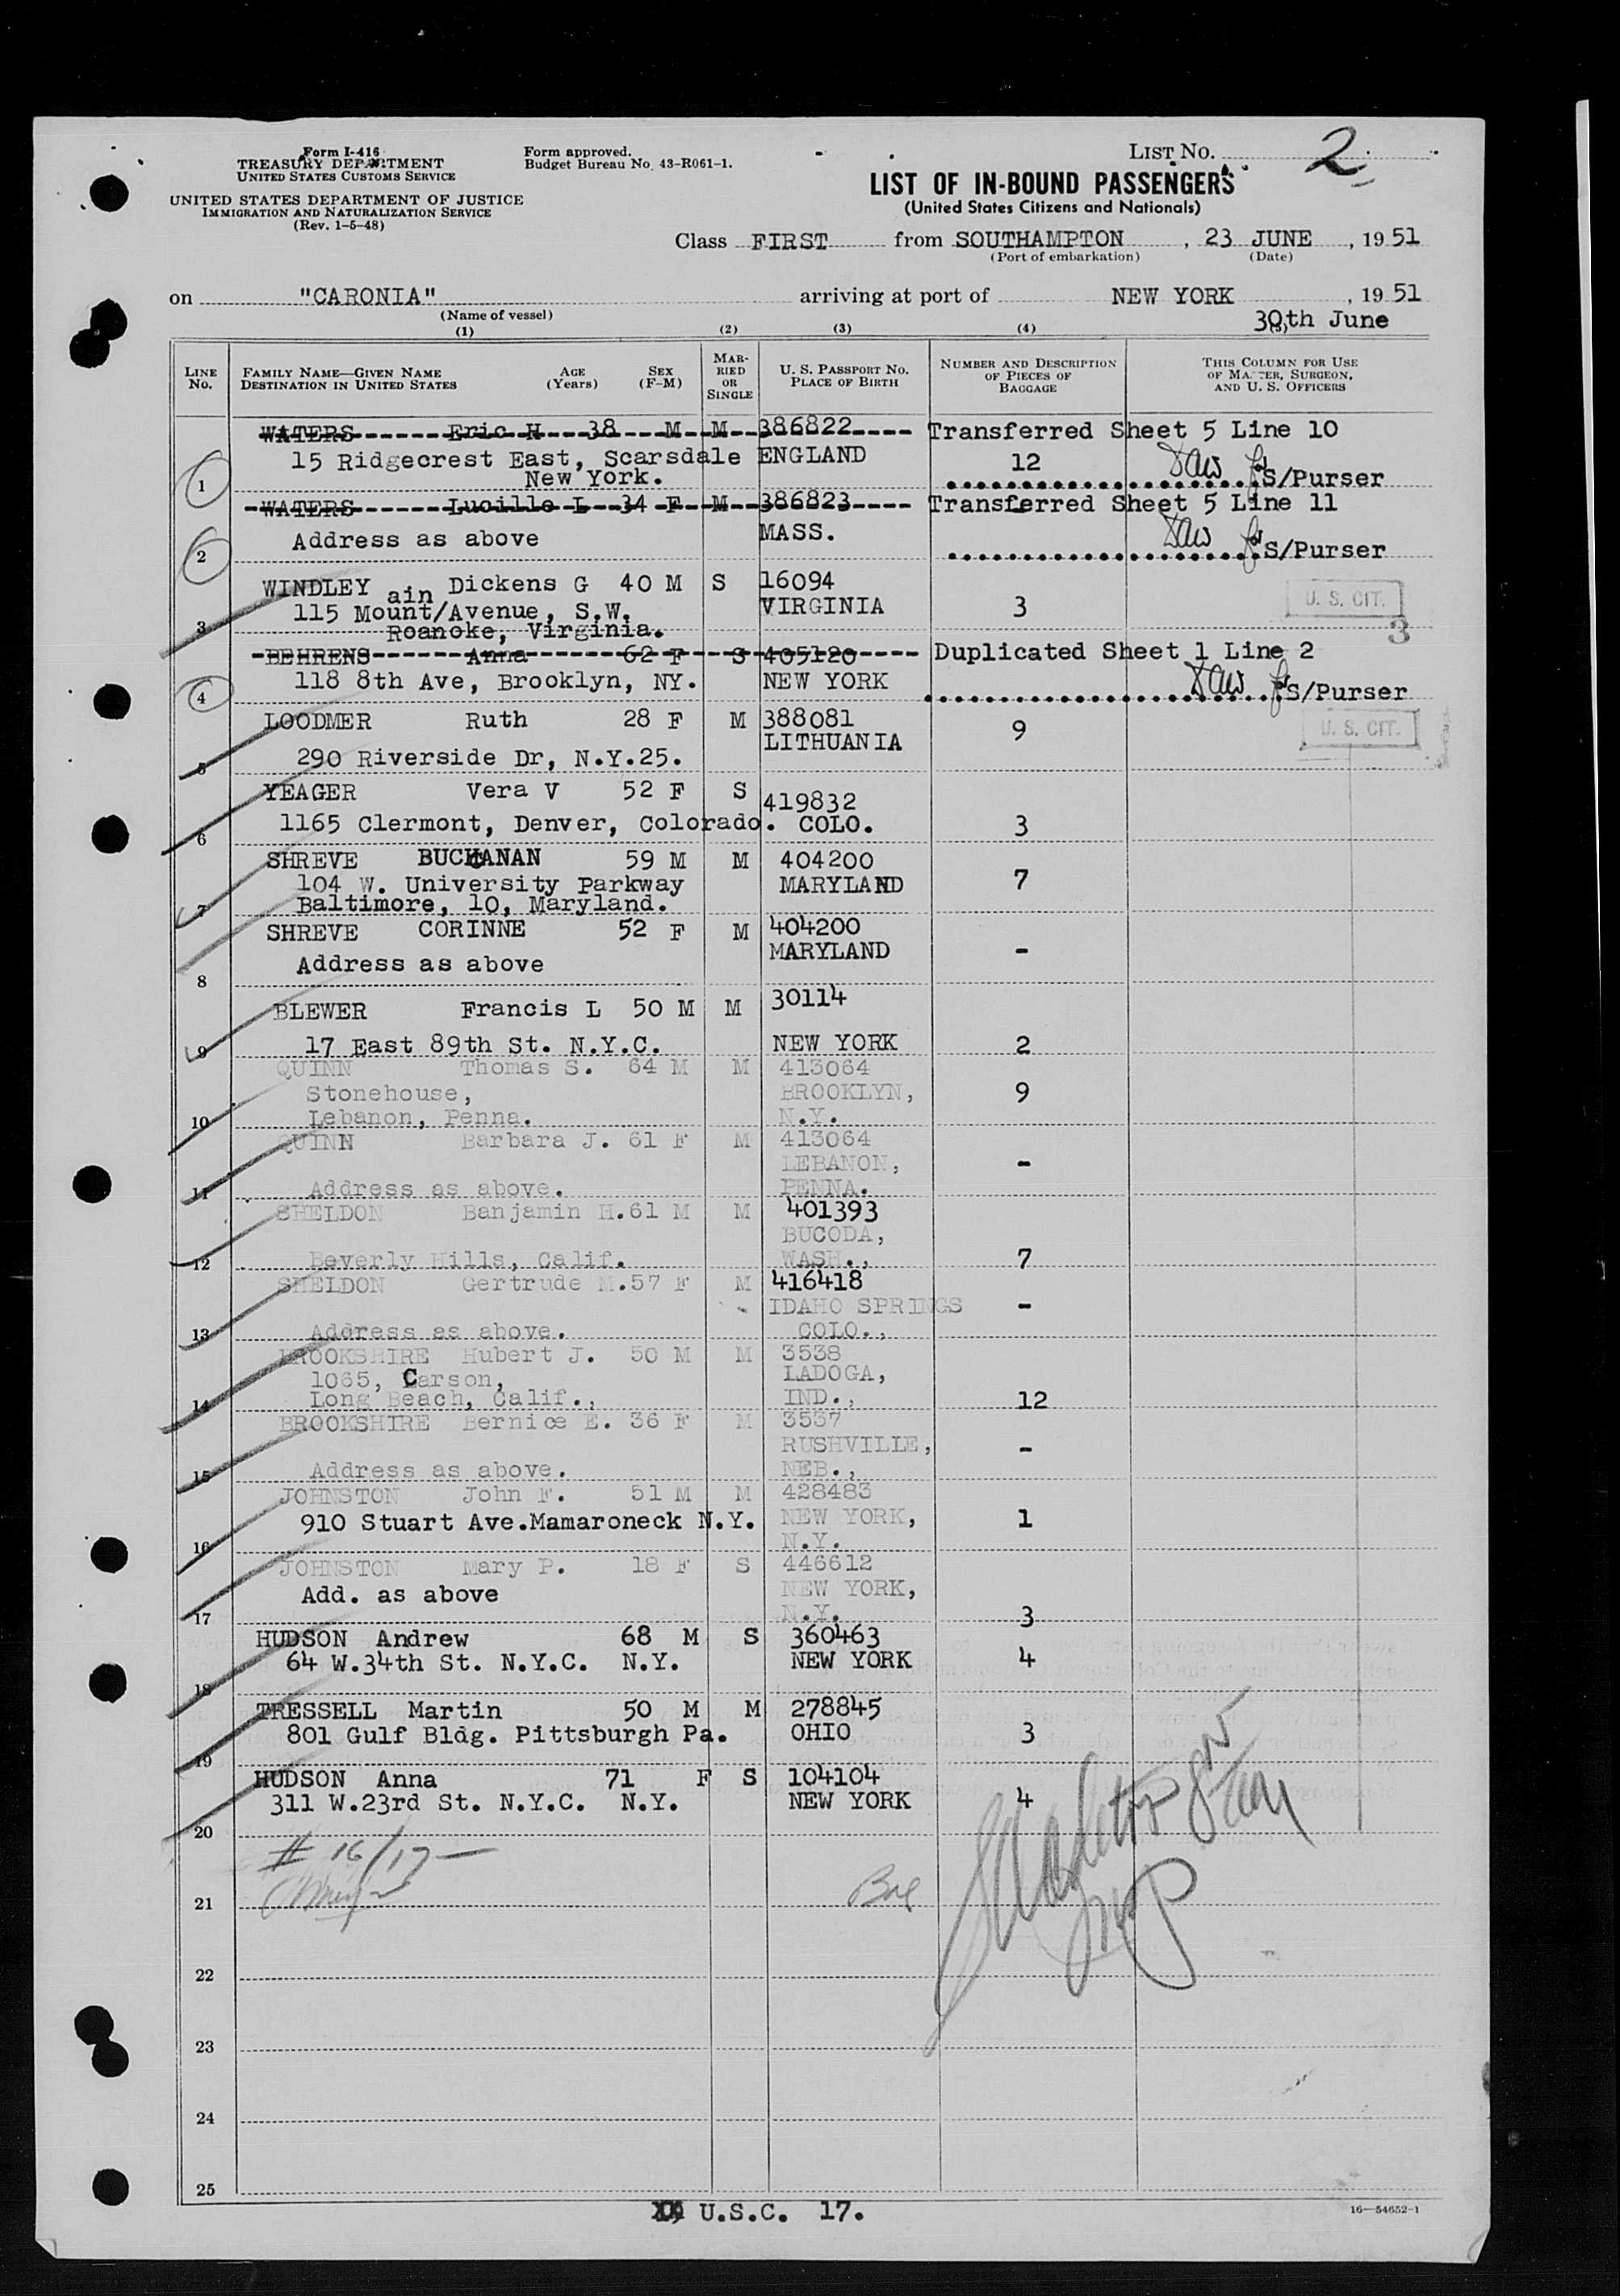 Form I-416
TREASURY DEPARTMENT
UNITED STATES CUSTOMS SERVICE
UNITED STATES DEPARTMENT OF JUSTICE
IMMIGRATION AND NATURALIZATION SERVICE
(Rev. 1-5-48)
Form approved.
Budget Bureau No. 43-R061-1.
LIST NO. 2
LIST OF IN-BOUND PASSENGERS
(United States Citizens and Nationals)
Class FIRST from SOUTHAMPTON, 23 JUNE, 1951
(Port of embarkation) (Date)
on "CARONIA" arriving at port of NEW YORK, 1951
(Name of vessel) 30th June
(1) (2) (3) (4) (5)
LINE NO. FAMILY NAME—GIVEN NAME DESTINATION IN UNITED STATES AGE (Years) SEX (F-M) MARRIED OR SINGLE U. S. PASSPORT NO. PLACE OF BIRTH NUMBER AND DESCRIPTION OF PIECES OF BAGGAGE THIS COLUMN FOR USE OF MASTER, SURGEON, AND U. S. OFFICERS
WATERS Eric H 38 M M 386822 Transferred Sheet 5 Line 10
15 Ridgecrest East, Scarsdale ENGLAND 12
1 New York. S/Purser
WATERS Lucille L 34 F M 386823 Transferred Sheet 5 Line 11
Address as above MASS. -
2 S/Purser
WINDLEY Dickens G 40 M S 16094
ain
115 Mount/Avenue, S.W. VIRGINIA 3 U. S. CIT.
3 Roanoke, Virginia. 3
BEHRENS Anna 62 F S 405120 Duplicated Sheet 1 Line 2
4 118 8th Ave, Brooklyn, NY. NEW YORK S/Purser
LOODMER Ruth 28 F M 388081 9 U. S. CIT.
LITHUANIA
5 290 Riverside Dr, N.Y.25.
YEAGER Vera V 52 F S 419832
6 1165 Clermont, Denver, Colorado. COLO. 3
SHREVE BUCHANAN 59 M M 404200
104 W. University Parkway MARYLAND 7
7 Baltimore, 10, Maryland.
SHREVE CORINNE 52 F M 404200
MARYLAND -
Address as above
8
BLEWER Francis L 50 M M 30114
9 17 East 89th St. N.Y.C. NEW YORK 2
QUINN Thomas S. 64 M M 413064
Stonehouse, BROOKLYN, 9
10 Lebanon, Penna. N.Y.
QUINN Barbara J. 61 F M 413064
LEBANON, -
11 Address as above. PENNA.
SHELDON Banjamin H. 61 M M 401393
BUCODA,
12 Beverly Hills, Calif. WASH., 7
SHELDON Gertrude M. 57 F M 416418
IDAHO SPRINGS -
13 Address as above. COLO.,
BROOKSHIRE Hubert J. 50 M M 3538
1065, Carson, LADOGA,
14 Long Beach, Calif., IND., 12
BROOKSHIRE Bernice E. 36 F M 3537
RUSHVILLE, -
15 Address as above. NEB.,
JOHNSTON John F. 51 M M 428483
910 Stuart Ave.Mamaroneck N.Y. NEW YORK, 1
16 N.Y.
JOHNSTON Mary P. 18 F S 446612
Add. as above NEW YORK,
17 N.Y. 3
HUDSON Andrew 68 M S 360463
64 W.34th St. N.Y.C. N.Y. NEW YORK 4
18
TRESSELL Martin 50 M M 278845
801 Gulf Bldg. Pittsburgh Pa. OHIO 3
19
HUDSON Anna 71 F S 104104
311 W.23rd St. N.Y.C. N.Y. NEW YORK 4
20
# 16/17 —
21
22
23
24
25
U.S.C. 17.
16—54652-1